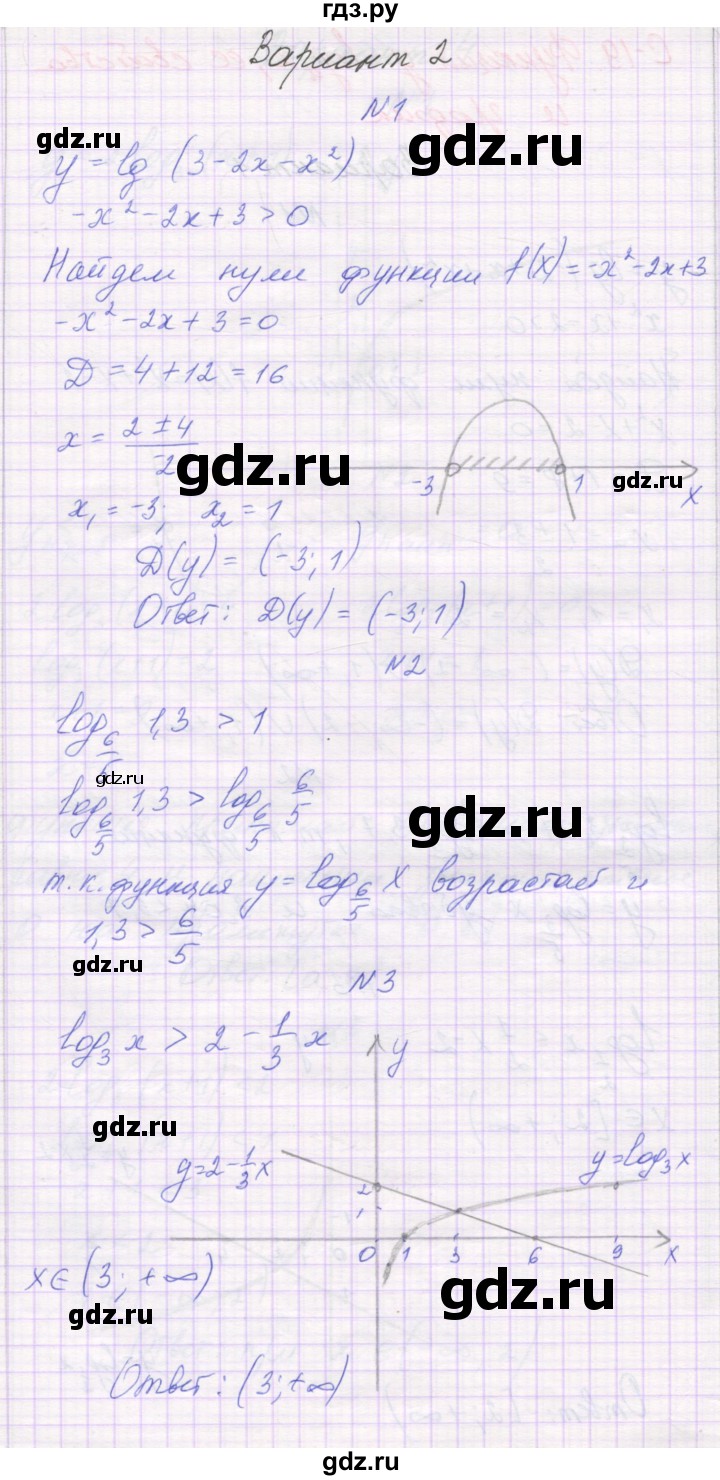 гдз.ру
Вариант 2
N1
gdz.ru
gdz.ru
y = lg (3 - 2x - x²)
-x² - 2x + 3 > 0
Найдем нули функции f(x) = -x² - 2x + 3
-x² - 2x + 3 = 0
D = 4 + 12 = 16
x = (2 ± 4)/(-2)
gdz.ru
-3 1 x
gdz.ru
x₁ = -3; x₂ = 1
D(y) = (-3; 1)
Ответ: D(y) = (-3; 1)
N2
log_{6/5} 1,3 > 1
gdz.ru
log_{6/5} 1,3 > log_{6/5} 6/5
gdz.ru
т.к. функция y = log_{6/5} x возрастает и
1,3 > 6/5
gdz.ru
N3
log₃ x > 2 - 1/3 x
y
gdz.ru
y = 2 - 1/3 x
y = log₃ x
2
1
0 1 3 6 9 x
x ∈ (3; +∞)
gdz.ru
gdz.ru
Ответ: (3; +∞)
gdz.ru
gdz.ru